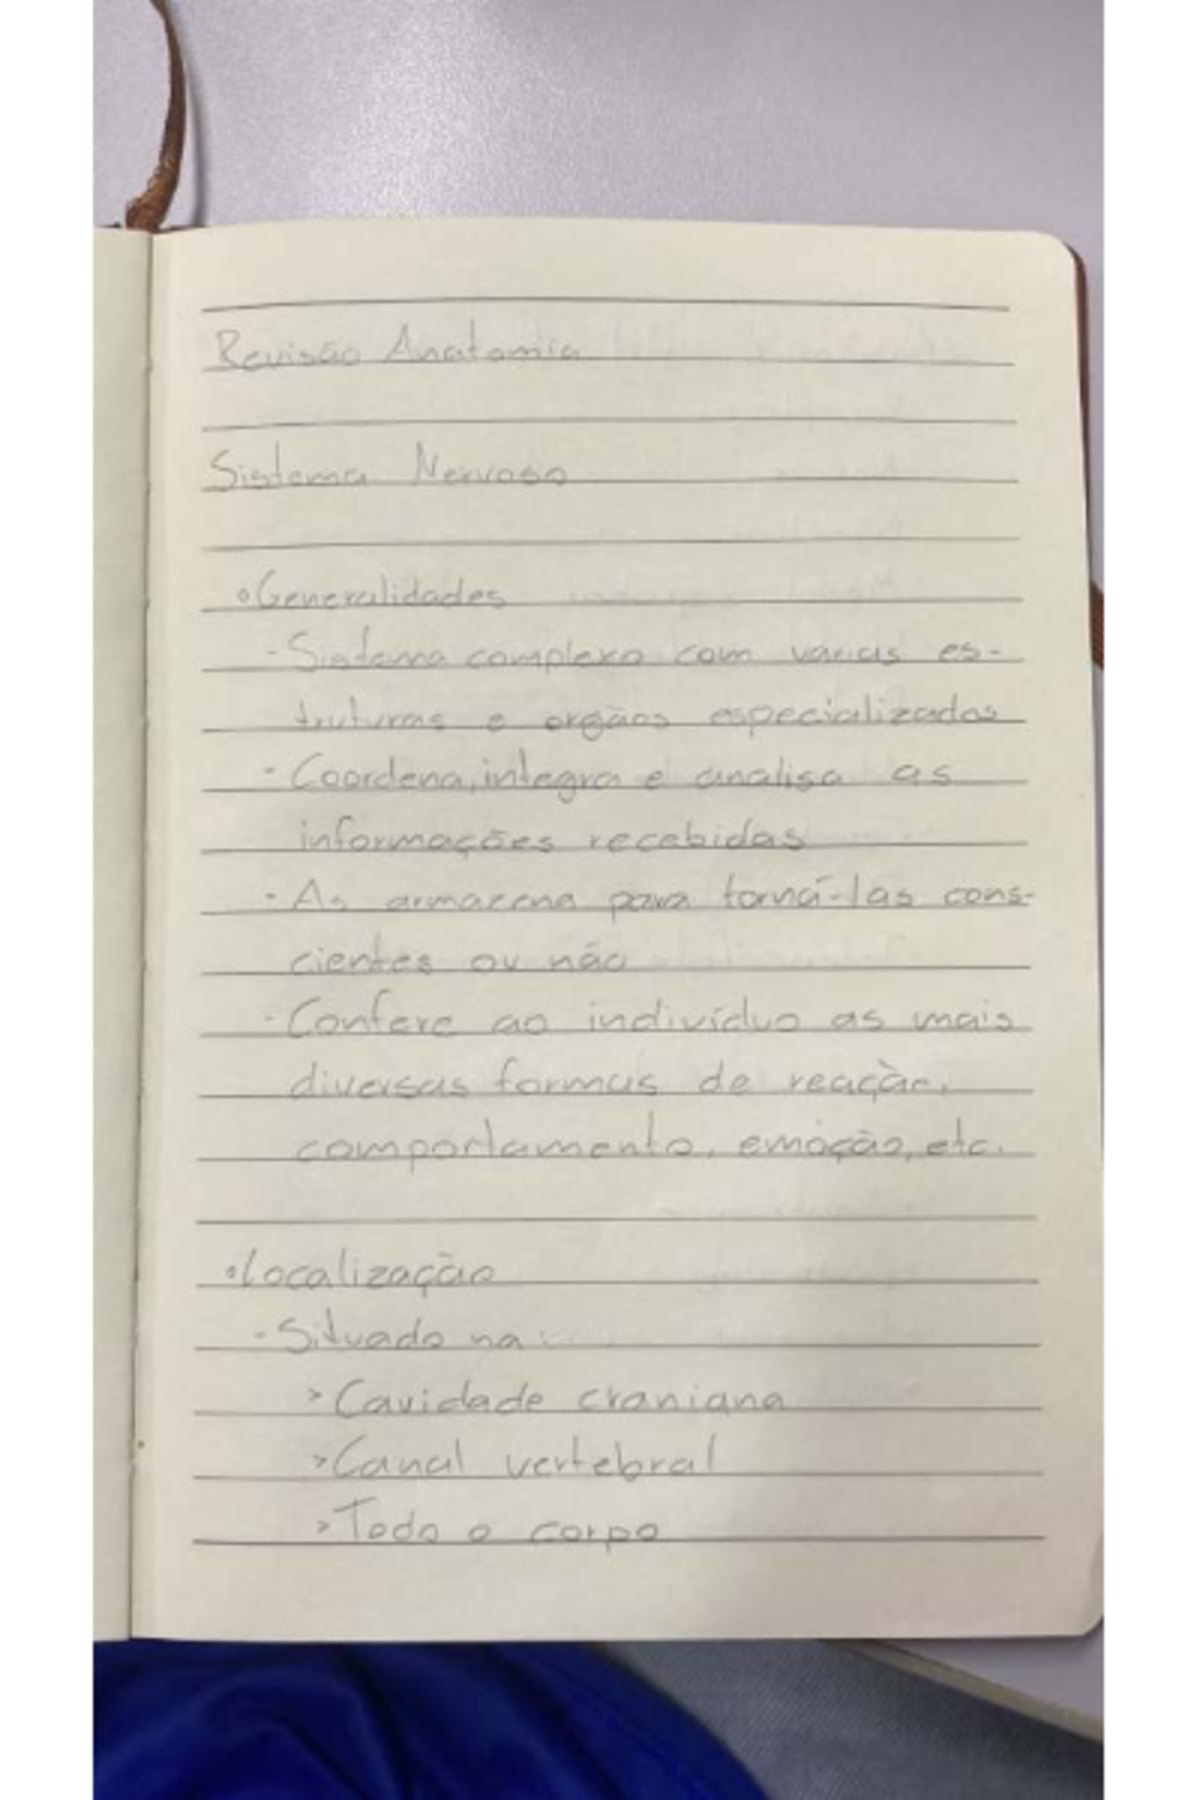 Revisão Anatomia
Sistema Nervoso
◦ Generalidades
- Sistema complexo com varias es-
truturas e orgãos especializados
- Coordena, integra e analisa as
informações recebidas
- As armazena para torná-las cons-
cientes ou não
- Confere ao indivíduo as mais
diversas formas de reação,
comportamento, emoção, etc.
◦ Localização
- Situado na:
> Cavidade craniana
> Canal vertebral
> Todo o corpo